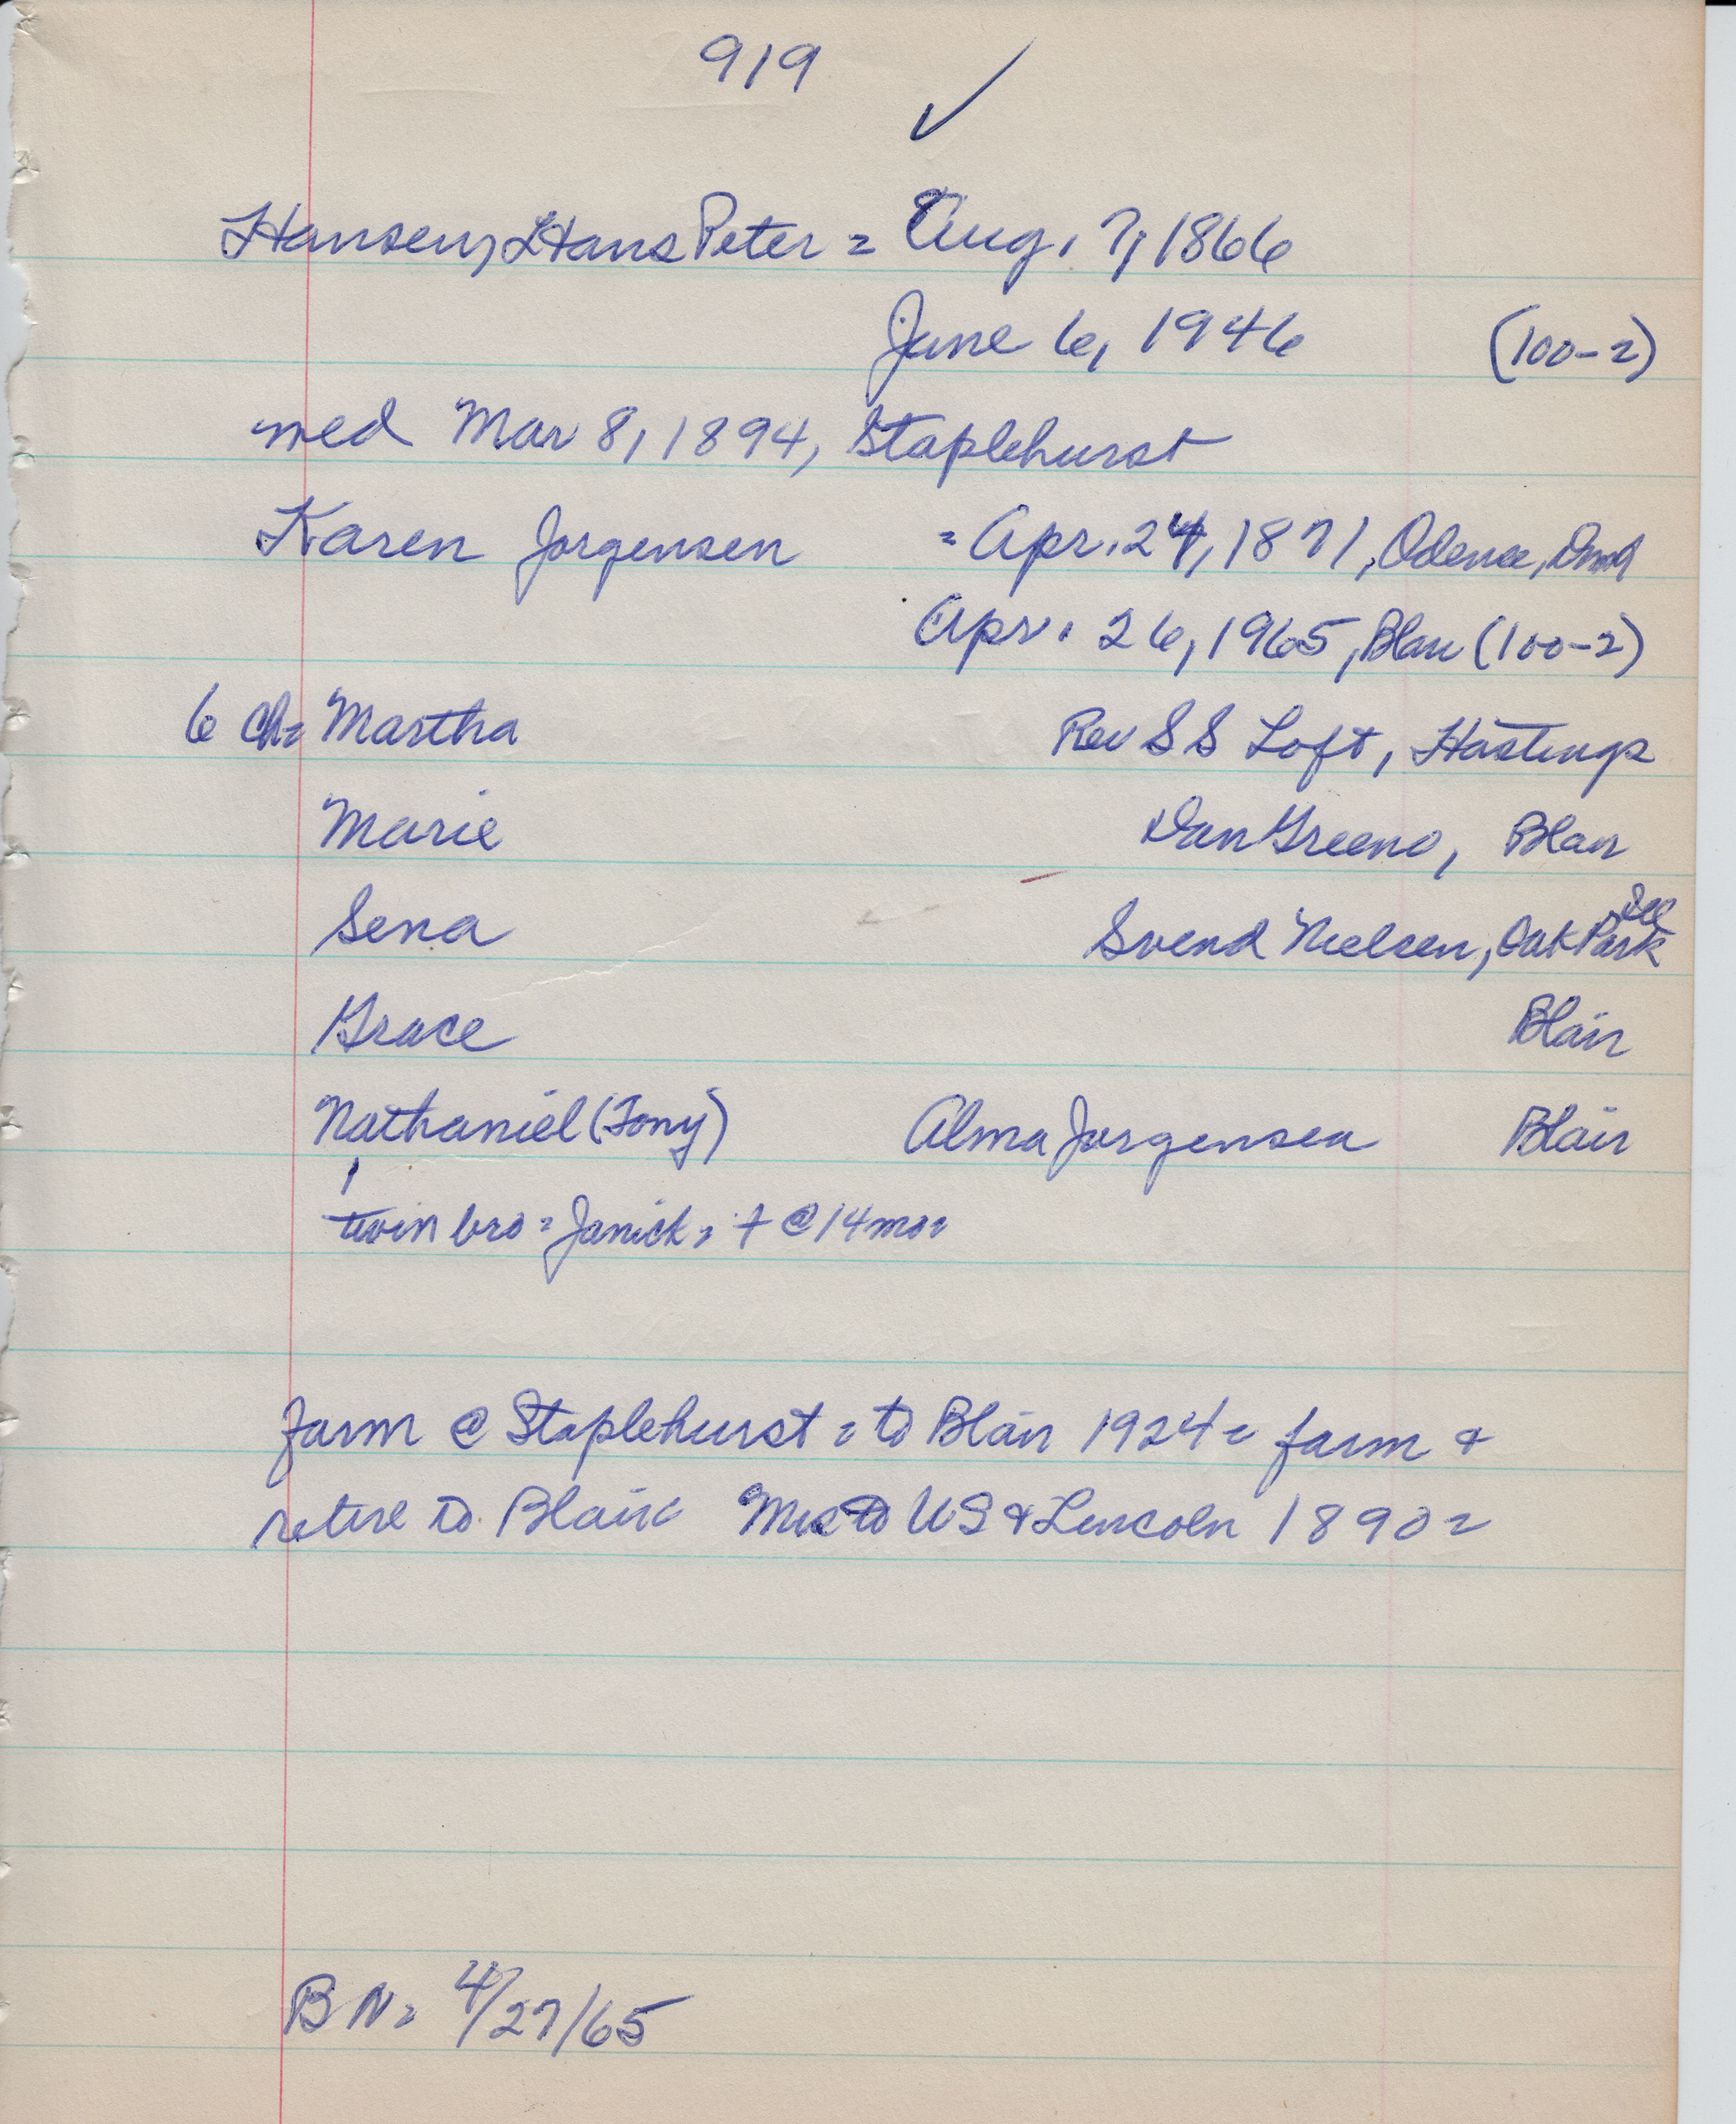 919 ✓
Hansen, Hans Peter = Aug. 7, 1866
June 6, 1946 (100-2)
med Mar 8, 1894, Staplehurst
Karen Jorgensen = Apr. 24, 1871, Odense, Dmd
Apr. 26, 1965, Blair (100-2)
6 ch= Martha Rev S S Loft, Hastings
Marie Dan Greeno, Blair
Sena Svend Nielsen, Oak Park Ill
Grace Blair
Nathaniel (Tony) Alma Jorgensen Blair
twin bro = Janick, + @ 14 mo=
farm @ Staplehurst = to Blair 1924 = farm &
retire to Blair Mrs to US & Lincoln 1890 =
BN= 4/27/65